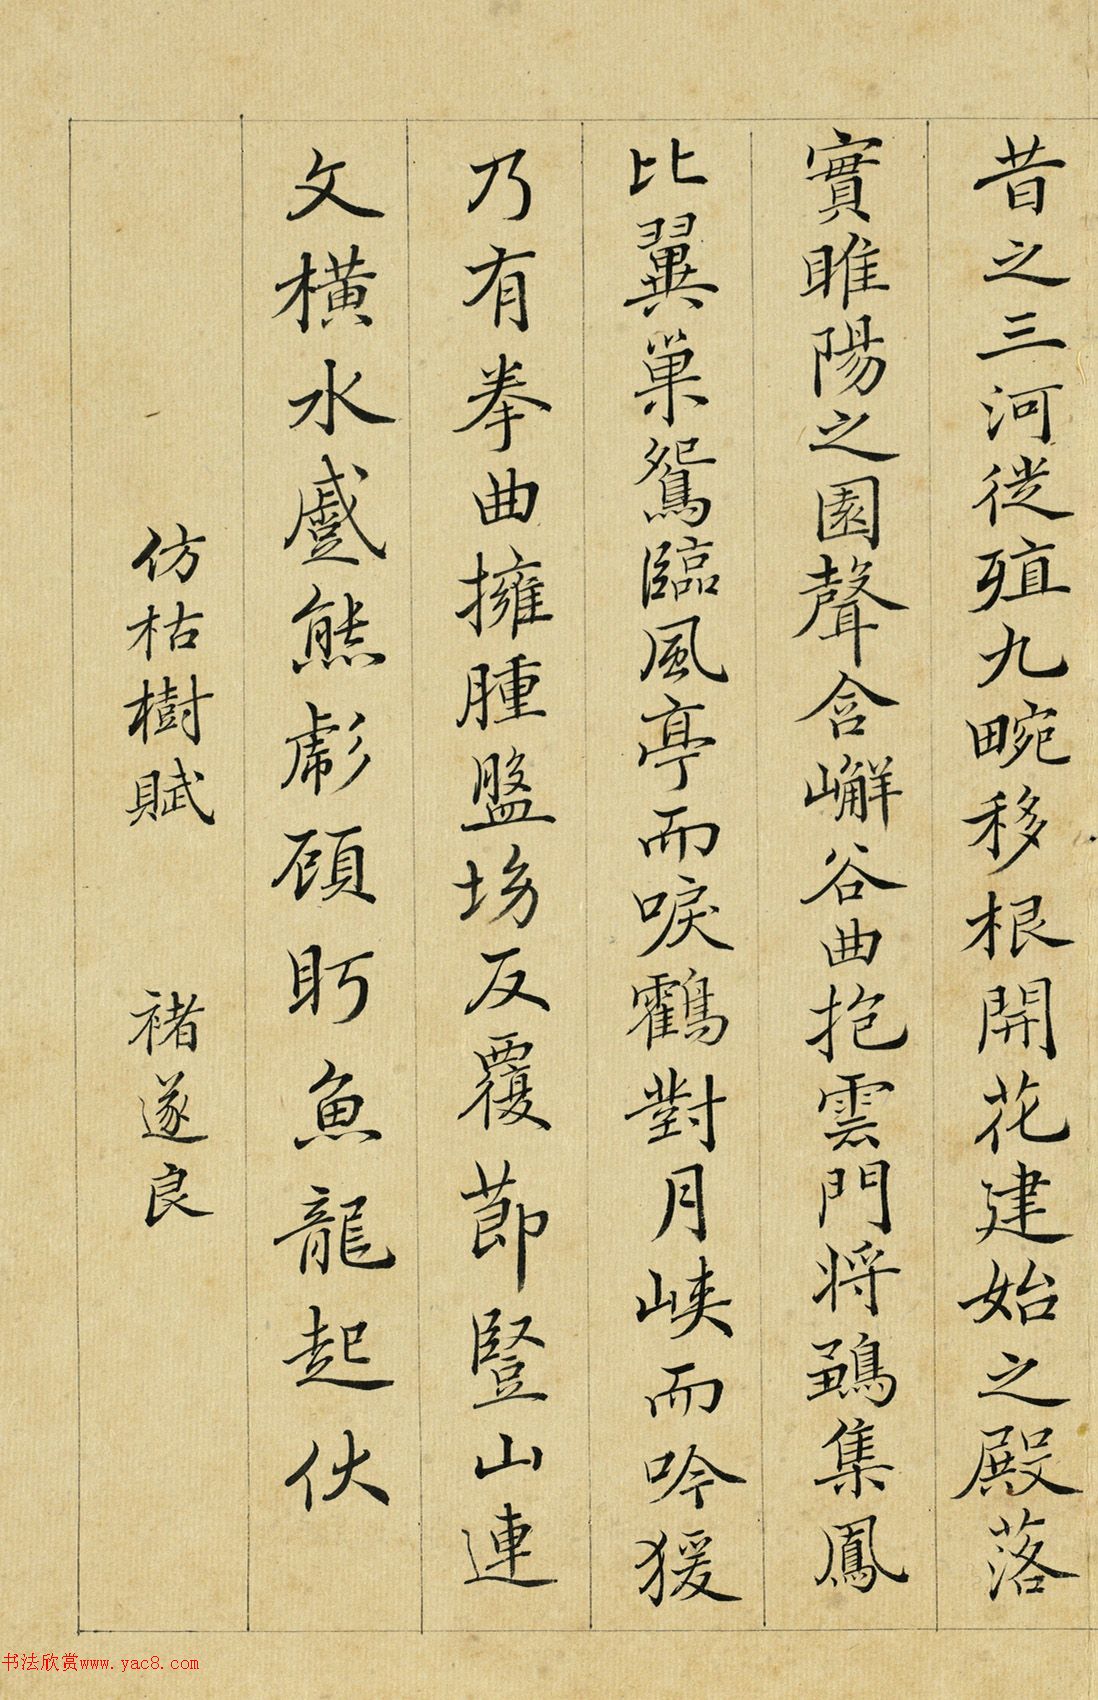 昔之三河徙殖九畹移根開花建始之殿落
實睢陽之園聲含嶰谷曲抱雲門将鶵集鳳
比翼巢鴛臨風亭而唳鶴對月峽而吟猨
乃有拳曲擁腫盤坳反覆莭豎山連
文橫水蹙熊彪顧盻魚龍起伏
仿枯樹賦 褚遂良
书法欣赏www.yac8.com